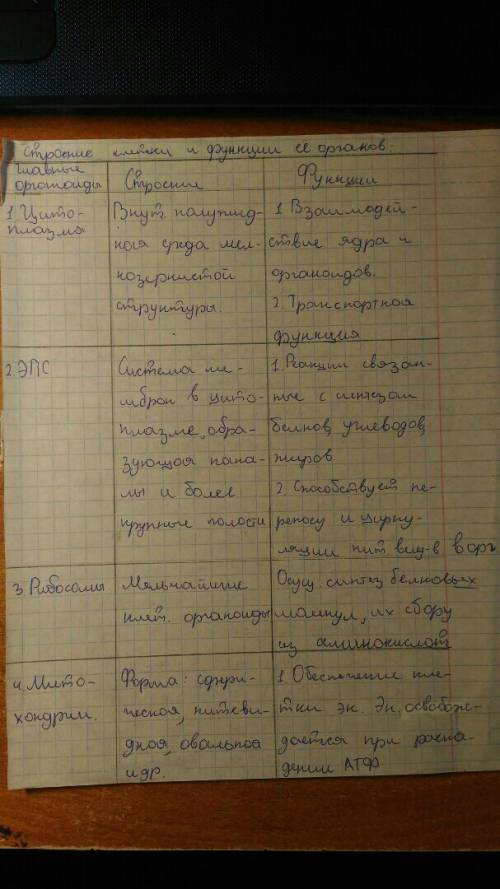 Строение клетки и функции её органов.
Главные органоиды
Строение
Функции
1. Цито-
плазма
Внут. полужид-
ная среда мел-
козернистой
структуры.
1. Взаимодей-
ствие ядра и
органоидов.
2. Транспортная
функция
2. ЭПС
Система ме-
мбран в цито-
плазме, обра-
зующая кана-
лы и более
крупные полости
1. Реакции связан-
ные с синтезом
белков, углеводов,
жиров.
2. Способствует пе-
реносу и цирку-
ляции пит. вещ-в в орг.
3. Рибосомы
Мельчайшие
клет. органоиды
Осущ. синтез белковых
молекул, их сбору
из аминокислот
4. Мито-
хондрии.
Форма: сфери-
ческая, нитеви-
дная, овальная
и др.
1. Обеспечение кле-
тки эн. Эн. освобож-
дается при распа-
дении АТФ